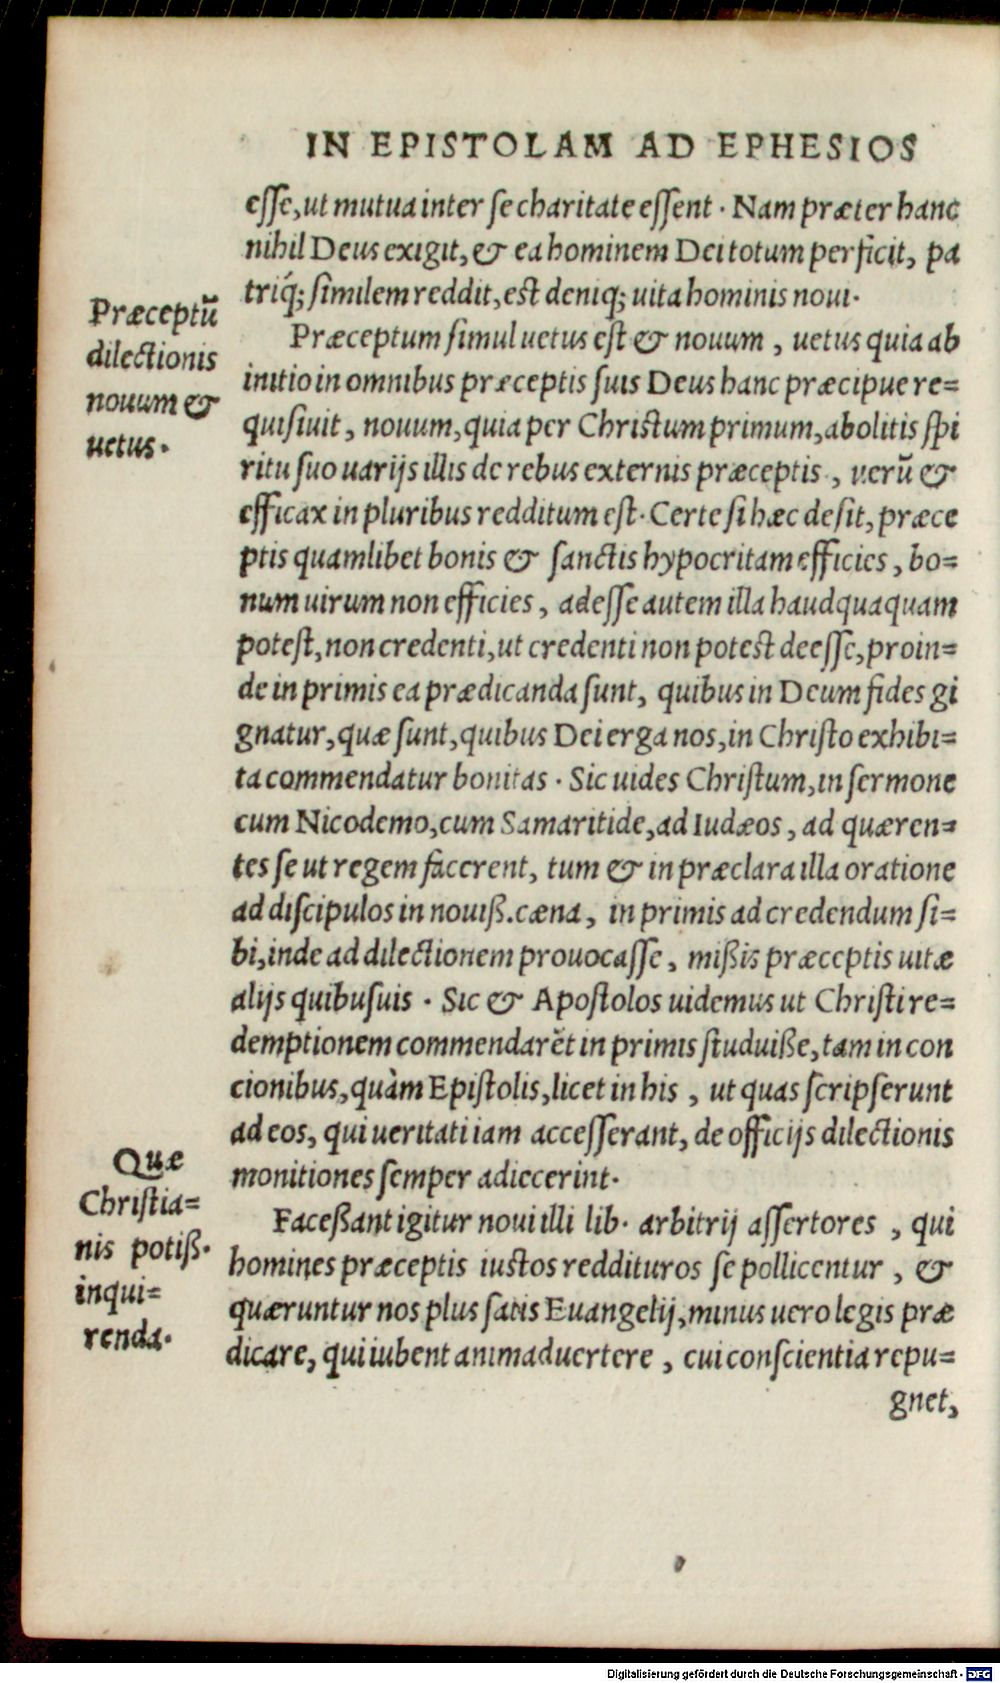 IN EPISTOLAM AD EPHESIOS
eſſe, ut mutua inter ſe charitate eſſent. Nam præter hanc
nihil Deus exigit, & ea hominem Dei totum perficit, pa
triq́; ſimilem reddit, est deniq; uita hominis noui.
Præceptū
dilectionis
nouum &
uetus.
Præceptum ſimul uetus eſt & nouum, uetus quia ab
initio in omnibus præceptis ſuis Deus hanc præcipue re=
quiſiuit, nouum, quia per Christum primum, abolitis ſpi
ritu ſuo uarijs illis de rebus externis præceptis, verū &
efficax in pluribus redditum eſt. Certe ſi hæc deſit, præce
ptis quamlibet bonis & ſanctis hypocritam efficies, bo=
num uirum non efficies, adeſſe autem illa haudquaquam
poteſt, non credenti, ut credenti non potest deeſſe, proin=
de in primis ea prædicanda ſunt, quibus in Deum fides gi
gnatur, quæ ſunt, quibus Dei erga nos, in Chriſto exhibi=
ta commendatur bonitas. Sic uides Chriſtum, in ſermone
cum Nicodemo, cum Samaritide, ad Iudæos, ad quæren=
tes ſe ut regem facerent, tum & in præclara illa oratione
ad diſcipulos in nouiß. cæna, in primis ad credendum ſi=
bi, inde ad dilectionem prouocaſſe, mißis præceptis uitæ
alijs quibuſuis. Sic & Apoſtolos uidemus ut Chriſti re=
demptionem commendarēt in primis ſtuduiße, tam in con
cionibus, quàm Epiſtolis, licet in his, ut quas ſcripſerunt
ad eos, qui ueritati iam acceſſerant, de officijs dilectionis
monitiones ſemper adiecerint.
Quæ
Chriſtia=
nis potiß.
inqui=
renda.
Faceßant igitur noui illi lib. arbitrij aſſertores, qui
homines præceptis iustos reddituros ſe pollicentur, &
quæruntur nos plus ſatis Euangelij, minus uero legis præ
dicare, qui iubent animaduertere, cui conſcientia repu=
gnet,
Digitalisierung gefördert durch die Deutsche Forschungsgemeinschaft - DFG